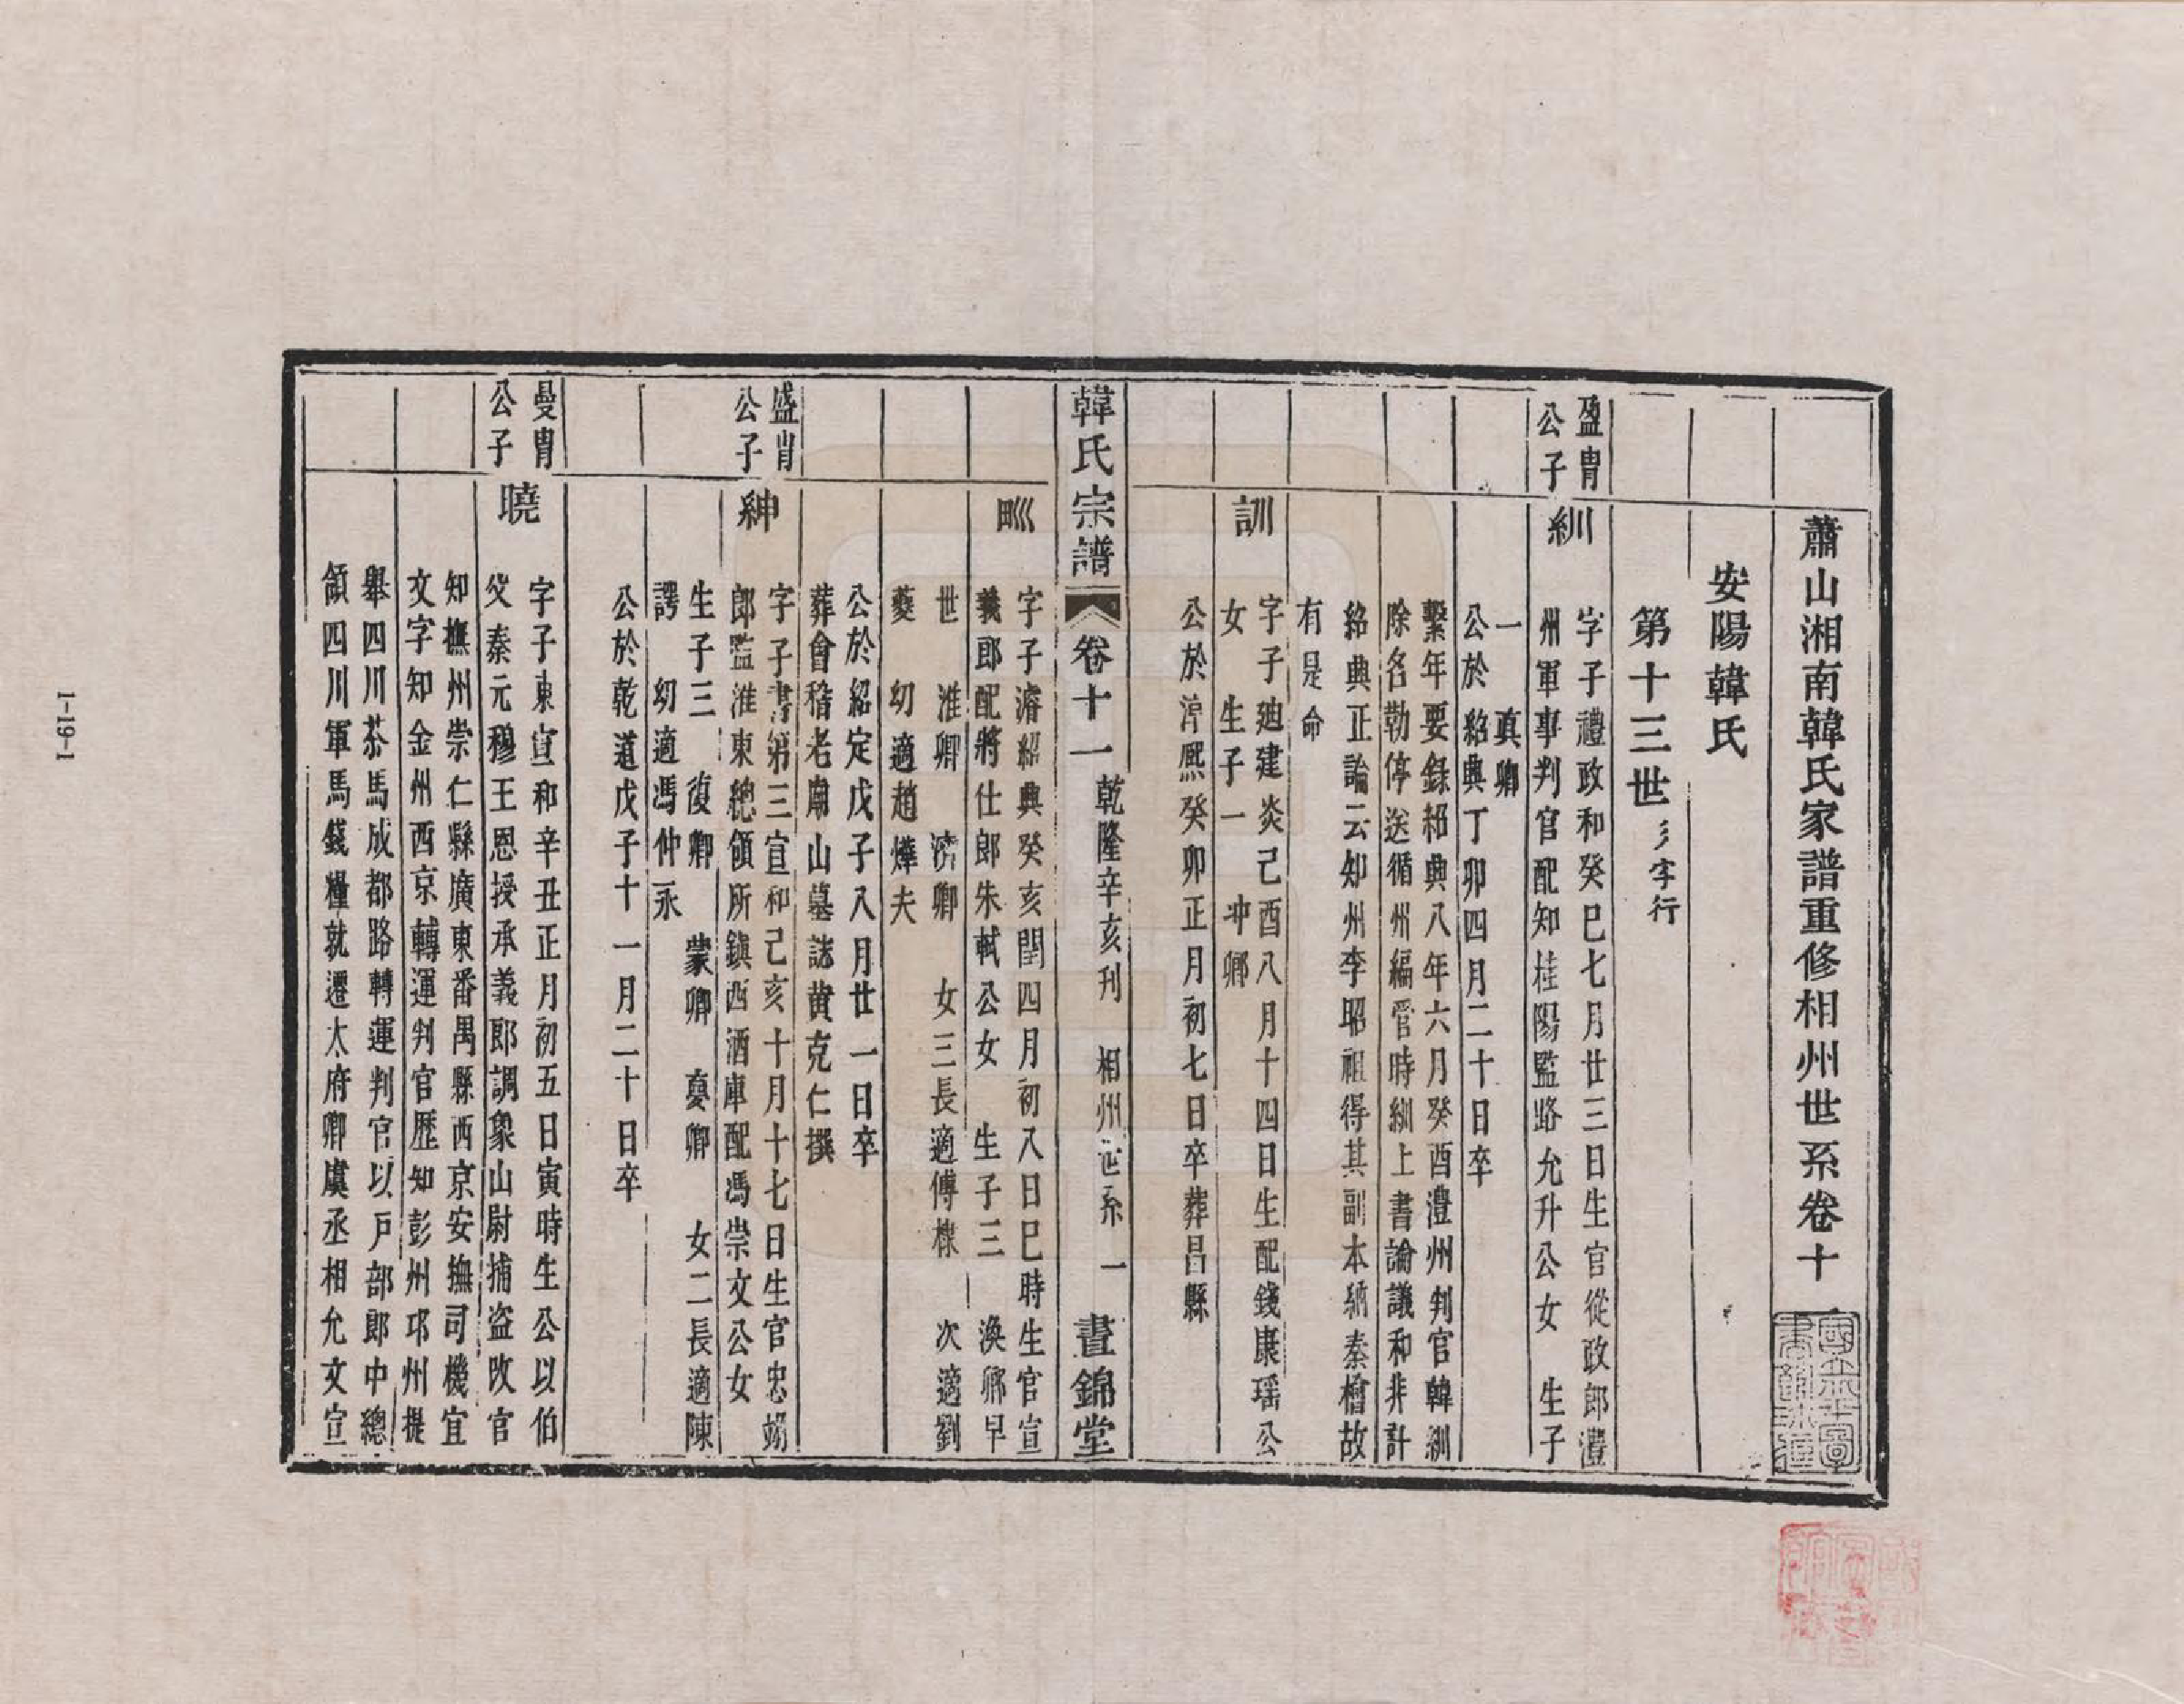 蕭山湘南韓氏家譜重修相州世系卷十一
安陽韓氏
第十三世彡字行
盈胄
公子
紃
字子禮政和癸巳七月廿三日生官從政郎澧
州軍事判官配知桂陽監路允升公女 生子
一 真卿
公於紹興丁卯四月二十日卒
繫年要錄紹興八年六月癸酉澧州判官韓紃
除名勒停送循州編管時紃上書論議和非計
紹興正論云知州李昭祖得其副本納秦檜故
有是命
訓
字子廸建炎己酉八月十四日生配錢康瑶公
女 生子一 冲卿
公於淳熙癸卯正月初七日卒葬昌縣
韓氏宗譜
卷十一
乾隆辛亥刊 相州世系 一
晝錦堂
甽
字子濬紹興癸亥閏四月初八日巳時生官宣
義郎配將仕郎朱軾公女 生子三 渙卿早
世 淮卿 濟卿 女三長適傅橚 次適劉
藙 幼適趙燁夫
公於紹定戊子八月廿一日卒
葬會稽老廟山墓誌黄克仁撰
盛胄
公子
紳
字子書第三宣和己亥十月十七日生官忠翊
郎監淮東總領所鎭西酒庫配馮崇文公女
生子三 復卿 蒙卿 憂卿 女二長適陳
諤 幼適馮仲永
公於乾道戊子十一月二十日卒
曼胄
公子
曉
字子東宣和辛丑正月初五日寅時生公以伯
父秦元穆王恩授承義郎調象山尉捕盜改官
知撫州崇仁縣廣東番禺縣西京安撫司機宜
文字知金州西京轉運判官歴知彭州邛州提
舉四川茶馬成都路轉運判官以戸部郎中總
領四川軍馬錢糧就遷太府卿虞丞相允文宣
1-19-1